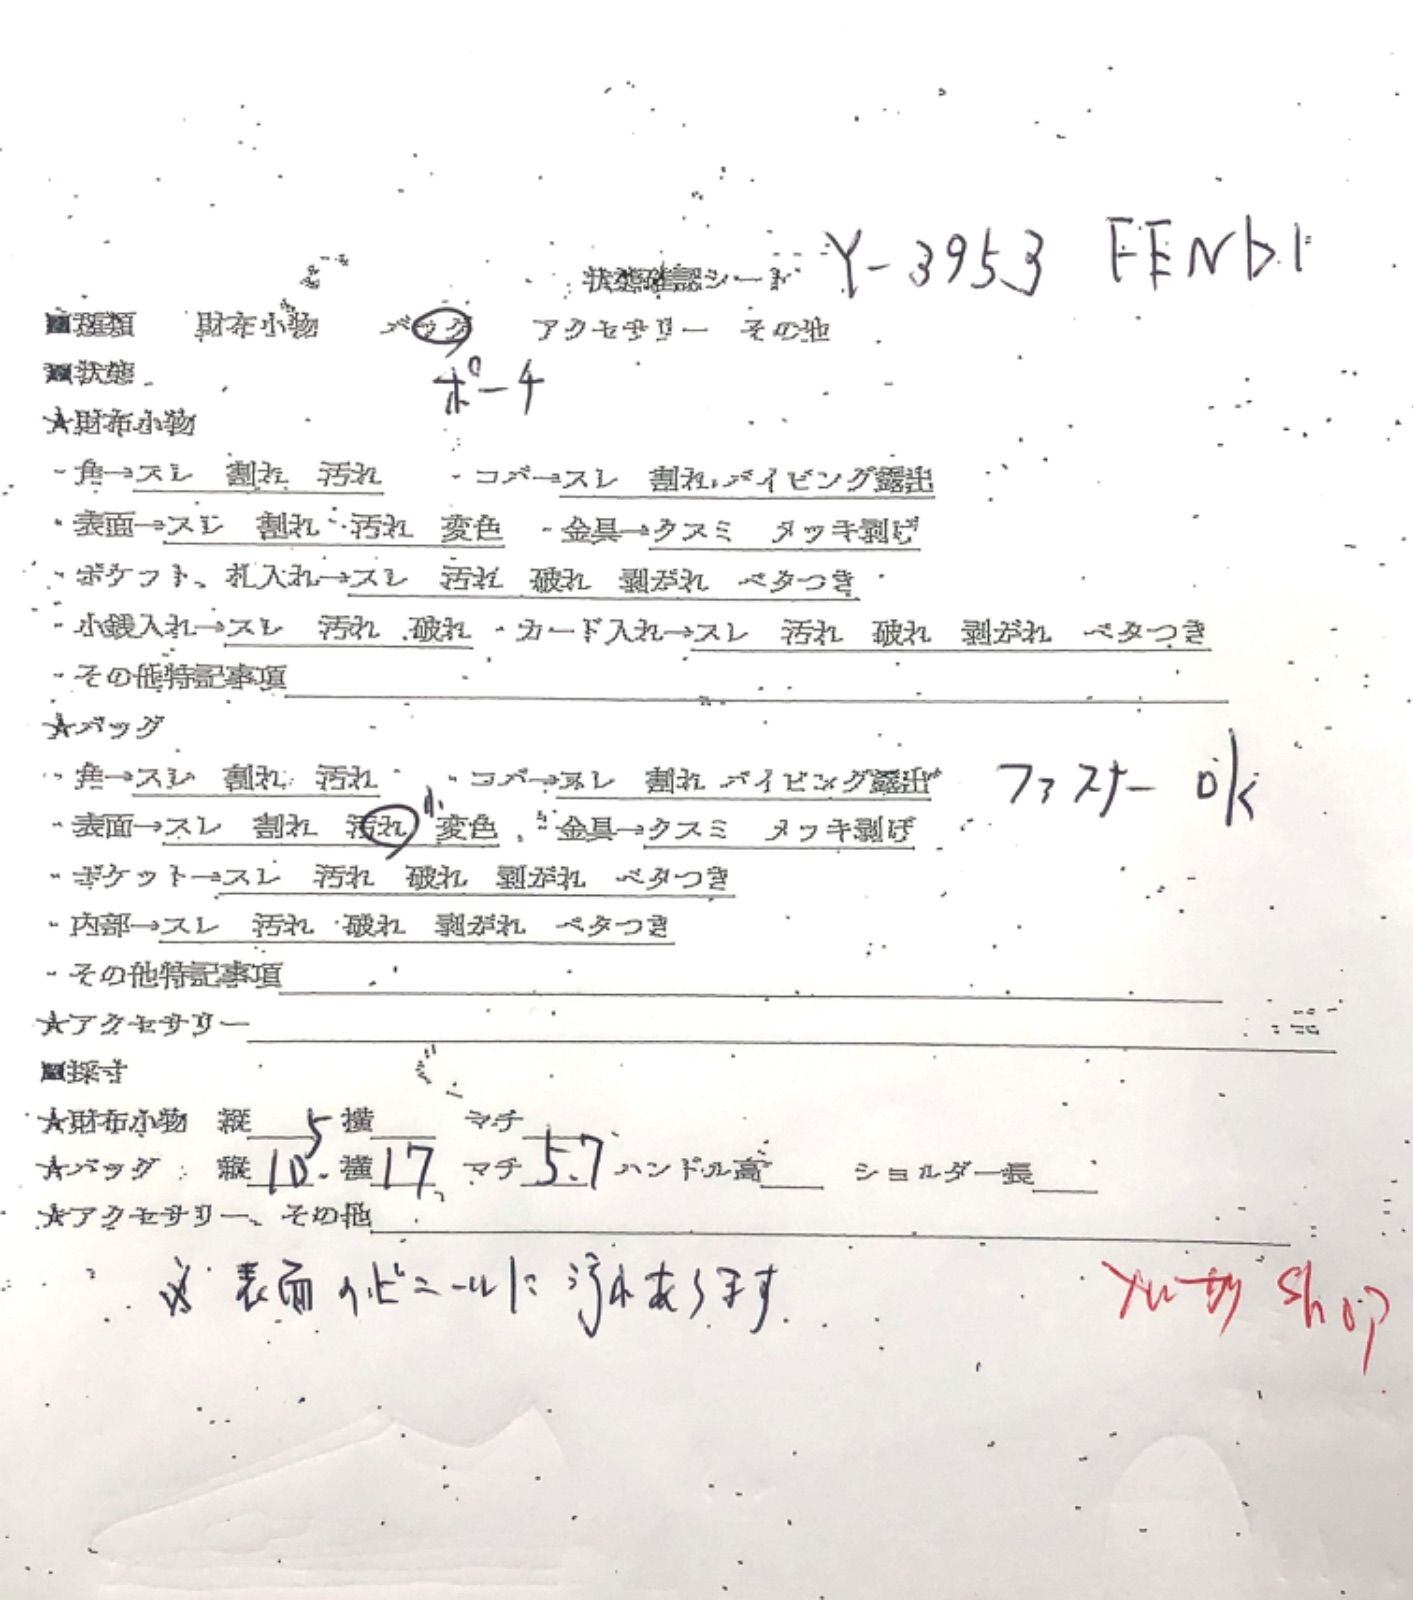 Y-3953 FENDI
状態確認シート
■種類 財布小物 バッグ アクセサリー その他
■状態
ポーチ
★財布小物
・角→スレ 割れ 汚れ ・コバ→スレ 割れ パイピング露出
・表面→スレ 割れ 汚れ 変色 ・金具→クスミ メッキ剥げ
・ポケット、札入れ→スレ 汚れ 破れ 剥がれ ベタつき
・小銭入れ→スレ 汚れ 破れ ・カード入れ→スレ 汚れ 破れ 剥がれ ベタつき
・その他特記事項
★バッグ
・角→スレ 割れ 汚れ ・コバ→スレ 割れ パイピング露出 ファスナー OK
・表面→スレ 割れ 汚れ 小 変色 ・金具→クスミ メッキ剥げ
・ポケット→スレ 汚れ 破れ 剥がれ ベタつき
・内部→スレ 汚れ 破れ 剥がれ ベタつき
・その他特記事項
★アクセサリー
■採寸
★財布小物 縦 横 マチ
★バッグ 縦 10.5 横 17 マチ 5.7 ハンドル高 ショルダー長
★アクセサリー、その他
※ 表面のビニールに汚れあります
shop